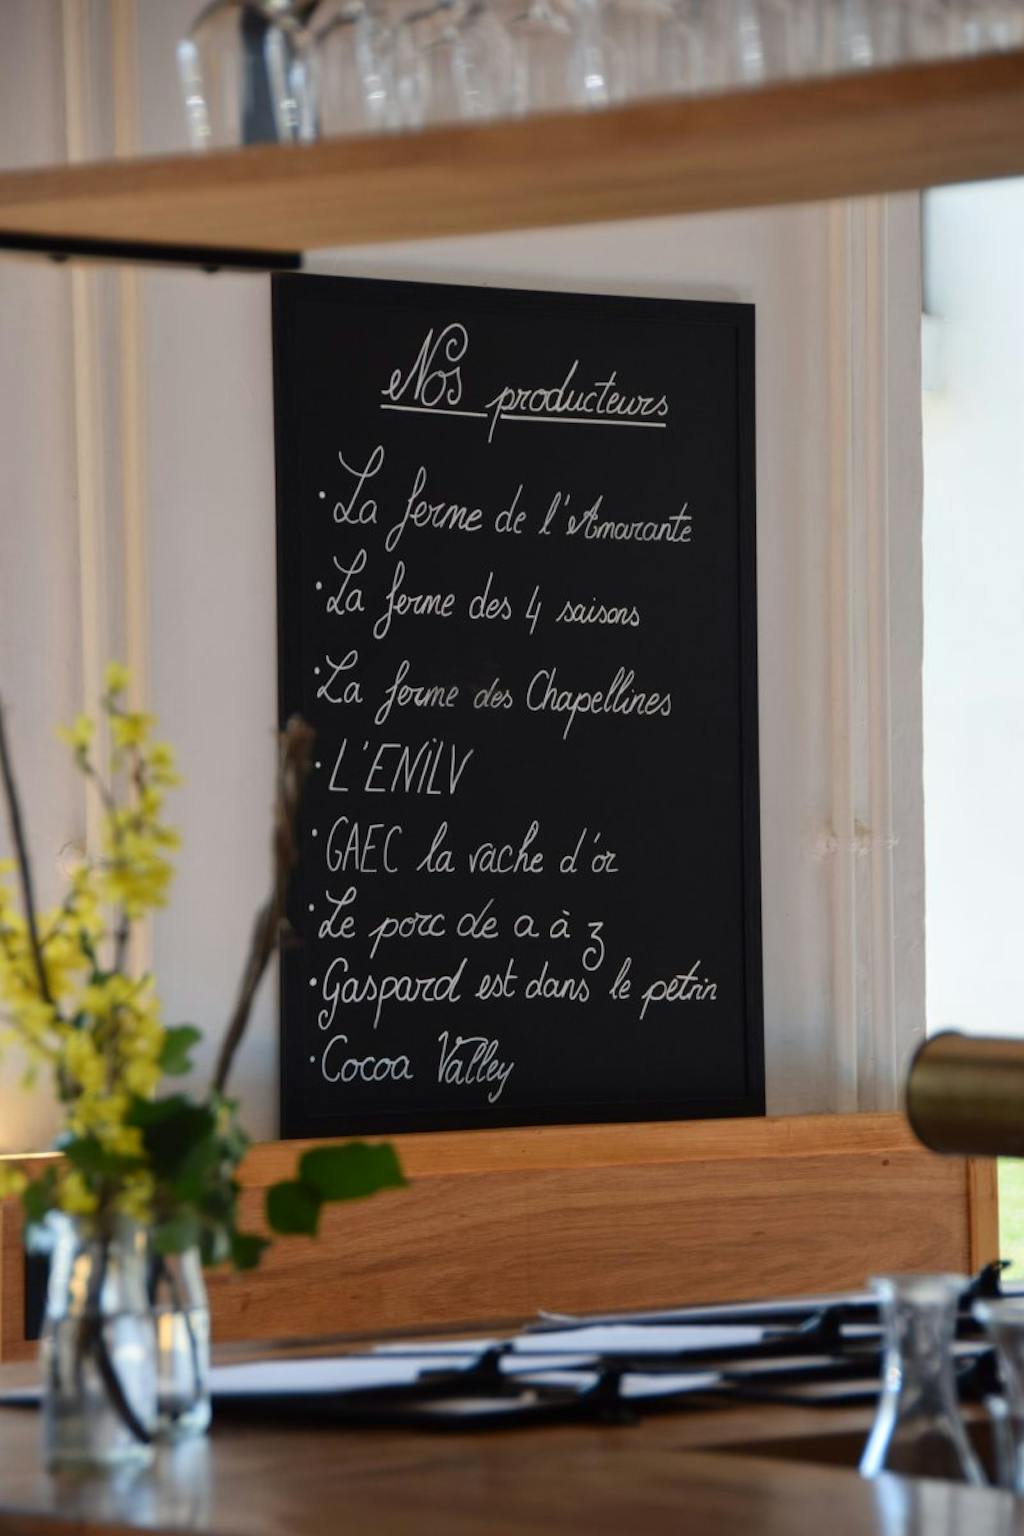 Nos producteurs
· La ferme de l'Amarante
· La ferme des 4 saisons
· La ferme des Chapellines
· L'ENILV
· GAEC la vache d'or
· Le porc de a à z
· Gaspard est dans le petrin
· Cocoa Valley